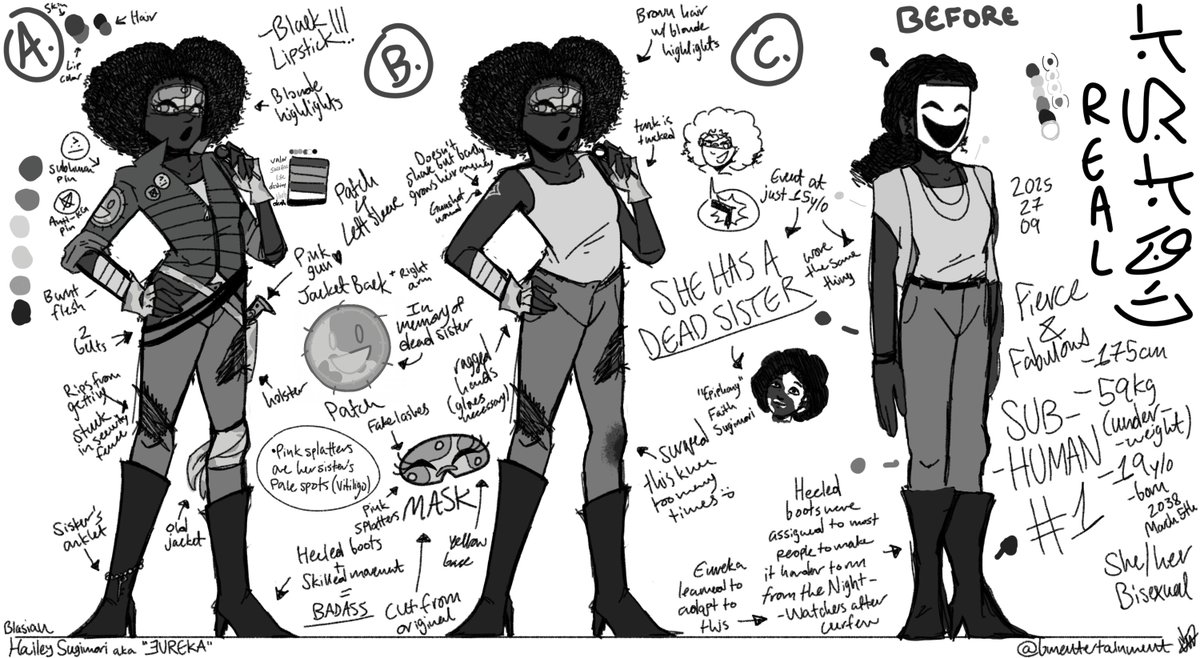 A.
Skin
Hair
Lip
color
-Black
Lipstick!!!...
Blonde
highlights
Subhuman
pin
Pin
Burnt
flesh
2
belts
Rips from
getting
stuck
in security
fence
Sister's
anklet
old
jacket
holster
Pink
gun
Patch
Left sleeve
Jacket Back
+ Right
arm
In
memory of
dead sister
Patch
•Pink splatters
are her sister's
Pale spots (Vitiligo)
Heeled boots
+
Skilled movement
=
BADASS
Fake lashes
MASK
Pink
splatters
Yellow
base
Cut from
original
B.
Brown hair
w/ blonde
highlights
Doesn't
shave but barely
grows hair anyway
Gunshot
wound
tank is
tucked
ragged
hands
(gloves
necessary)
scraped
this knee
too many
times :)
SHE HAS A
DEAD SISTER
"Epiphany"
Faith
Sugimori
Event at
just 15y/o
wore
the same
thing
C.
BEFORE
Eureka
learned to
adapt to
this
Heeled
boots were
assigned to most
people to make
it harder to run
from the Night-
-Watchers after
curfew
REAL
2025
27
09
Fierce
&
Fabulous
SUB-
-HUMAN
#1
-175cm
-59kg
(under-
-weight)
-19 y/o
-born
2038
March 5th
She/her
Bisexual
Blasian
Hailey Sugimori aka "ƎUREKA"
@bmentertainment